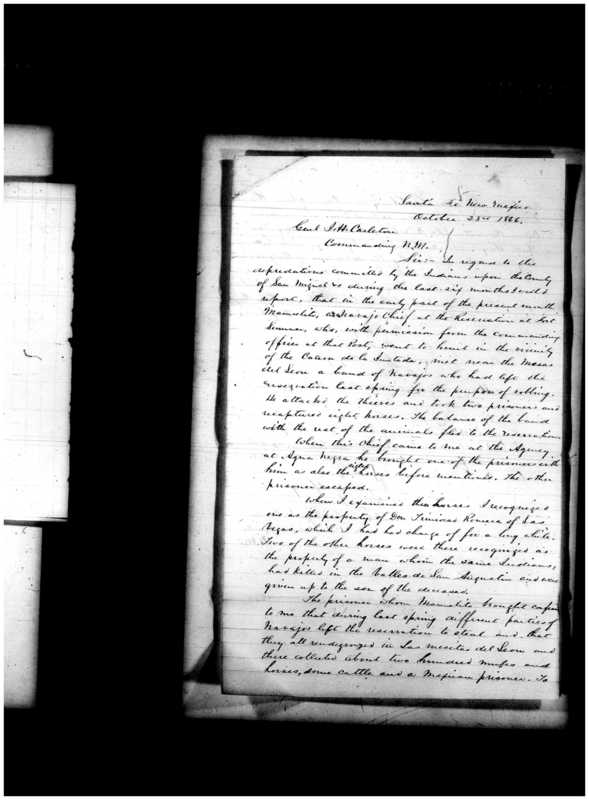 Santa Fé New Mexico
October 23rd 1866.
Genl J. H. Carleton
Commanding N.M.
Sir:- In regard to the
depredations committed by the Indians upon the County
of San Miguel during the last six months I will
report, that in the early part of the present month
Manuelito, a Navajo Chief at the Reservation at Fort
Sumner, who, with permission from the commanding
officer at that Post, went to hunt in the vicinity
of the de la met near the Mesas
del Leon a band of Navajos who had left the
reservation last spring for the purpose of robbing.
He attacked the thieves and took two prisoners and
recaptured eight horses. The balance of the band
with the rest of the animals fled to the reservation.
When this Chief came to me at the Agency
at Agua Negra he brought one of the prisoners with
him as also the eight horses before mentioned. The other
prisoner escaped.
When I examined the horses I recognized
one as the property of Don Trinidad Romero of Las
Vegas, which I had had charge of for a long while.
Two of the other horses were there recognized as
the property of a man whom the same Indians,
had killed in the Valles de San Augustin and were
given up to the son of the deceased.
The prisoner whom Manuelito brought
to me that during last spring different parties of
Navajos left the reservation to steal and that
they all rendezvoused in Las mesitas del Leon and
there collected about two hundred mules and
horses, some cattle and a Mexican prisoner. To